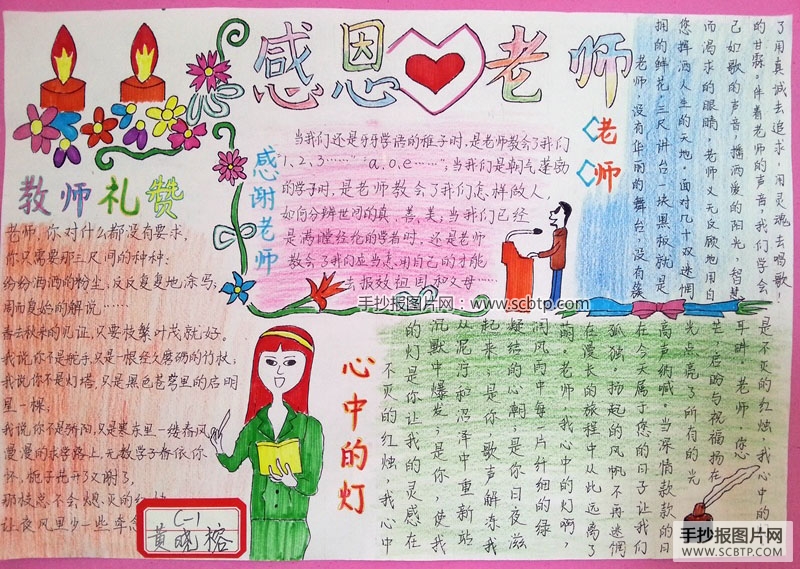 感恩老师
教师礼赞
老师，你对什么都没有要求，
你只需要那三尺间的种种：
纷纷洒洒的粉尘，反反复复地涂写，
周而复始的解说……
春去秋来的见证，只要枝繁叶茂就好。
我说你不是艄手，只是一根经久磨砺的竹杖；
我说你不是灯塔，只是黑色苍穹里的启明
星一棵；
我说你不是骄阳，只是寒冬里一缕春风
漫漫的求学路上，无数学子眷依你
怀，栀子花开了又谢了，
那枝总不会熄灭的红
让夜风里少一些牵念
感谢老师
当我们还是牙牙学语的稚子时，是老师教会了我们
1、2、3……""a、o、e……"；当我们是朝气蓬勃
的学子时，是老师教会了我们怎样做人，
如何分辨世间的真、善、美；当我们已经
是满膛经纶的学者时，还是老师
教会了我们应当怎用自己的才能
去报效祖国和父母…
手抄报图片网：www.scbtp.com
老师
了用真诚去追求，用灵魂去唱歌！
的甘霖。伴着老师的声音，我们学会
己如歌的声音，播洒爱的阳光，智慧
而渴求的眼睛，老师义无反顾地用自
您挥洒人生的天地。面对几十双迷惘
拥的鲜花，三尺讲台一块黑板就是
老师，没有华丽的舞台，没有簇
心中的灯
是不灭的红烛，我心中的
耳畔，老师，您
芒，启的与祝福扬在
光点亮了所有的光
高声呐喊。当深情款款的目
在今天属于您的日子让我们
孤独，扬起的风帆不再迷惘
在漫长的旅程中从此远离了
萌。老师，我心中的灯啊，
润风雨中每一片纤细的绿
凝结的心潮；是你日夜滋
起来；是你，歌声解冻我
从泥泞和沼泽中重新站
沉默中爆发；是你，使我
的灯是你让我的灵感在
不灭的红烛，我心中
C-1
黄晓榕
手抄报图片网
WWW.SCBTP.COM